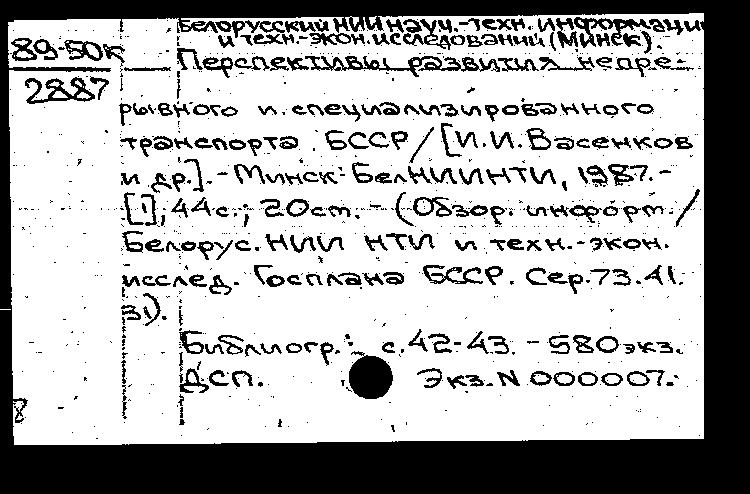 Белорусский НИИ науч.-техн. информации
и техн.-экон. исследований (Минск).
89-50к
Перспективы развития непре-
2887
рывного и специализированного
транспорта БССР / [И.И. Васенков
и др.]. - Минск: БелНИИНТИ, 1987. -
[1], 44 с.; 20 см. - (Обзор. информ. /
Белорус. НИИ НТИ и техн.-экон.
исслед. Госплана БССР. Сер. 73.41.
31).
Библиогр.: с. 42-43. - 580 экз.
ДСП. Экз. N 000007.
8